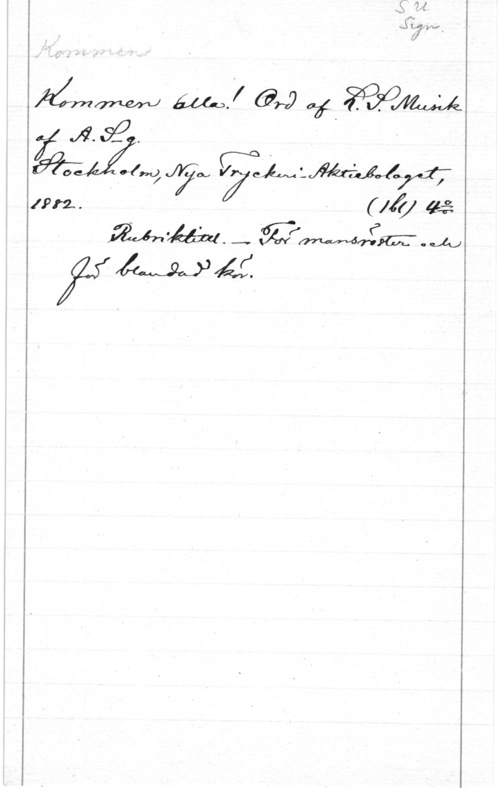 S U
Sign.
Kommen
Kommen alla! Ord af L. S. Musik
af A. S_g.
Stockholm, Nya Tryckeri-Aktiebolaget,
1882. (1 bl) 4:o
Rubriktitel. — För mansröster och
för blandad kör.